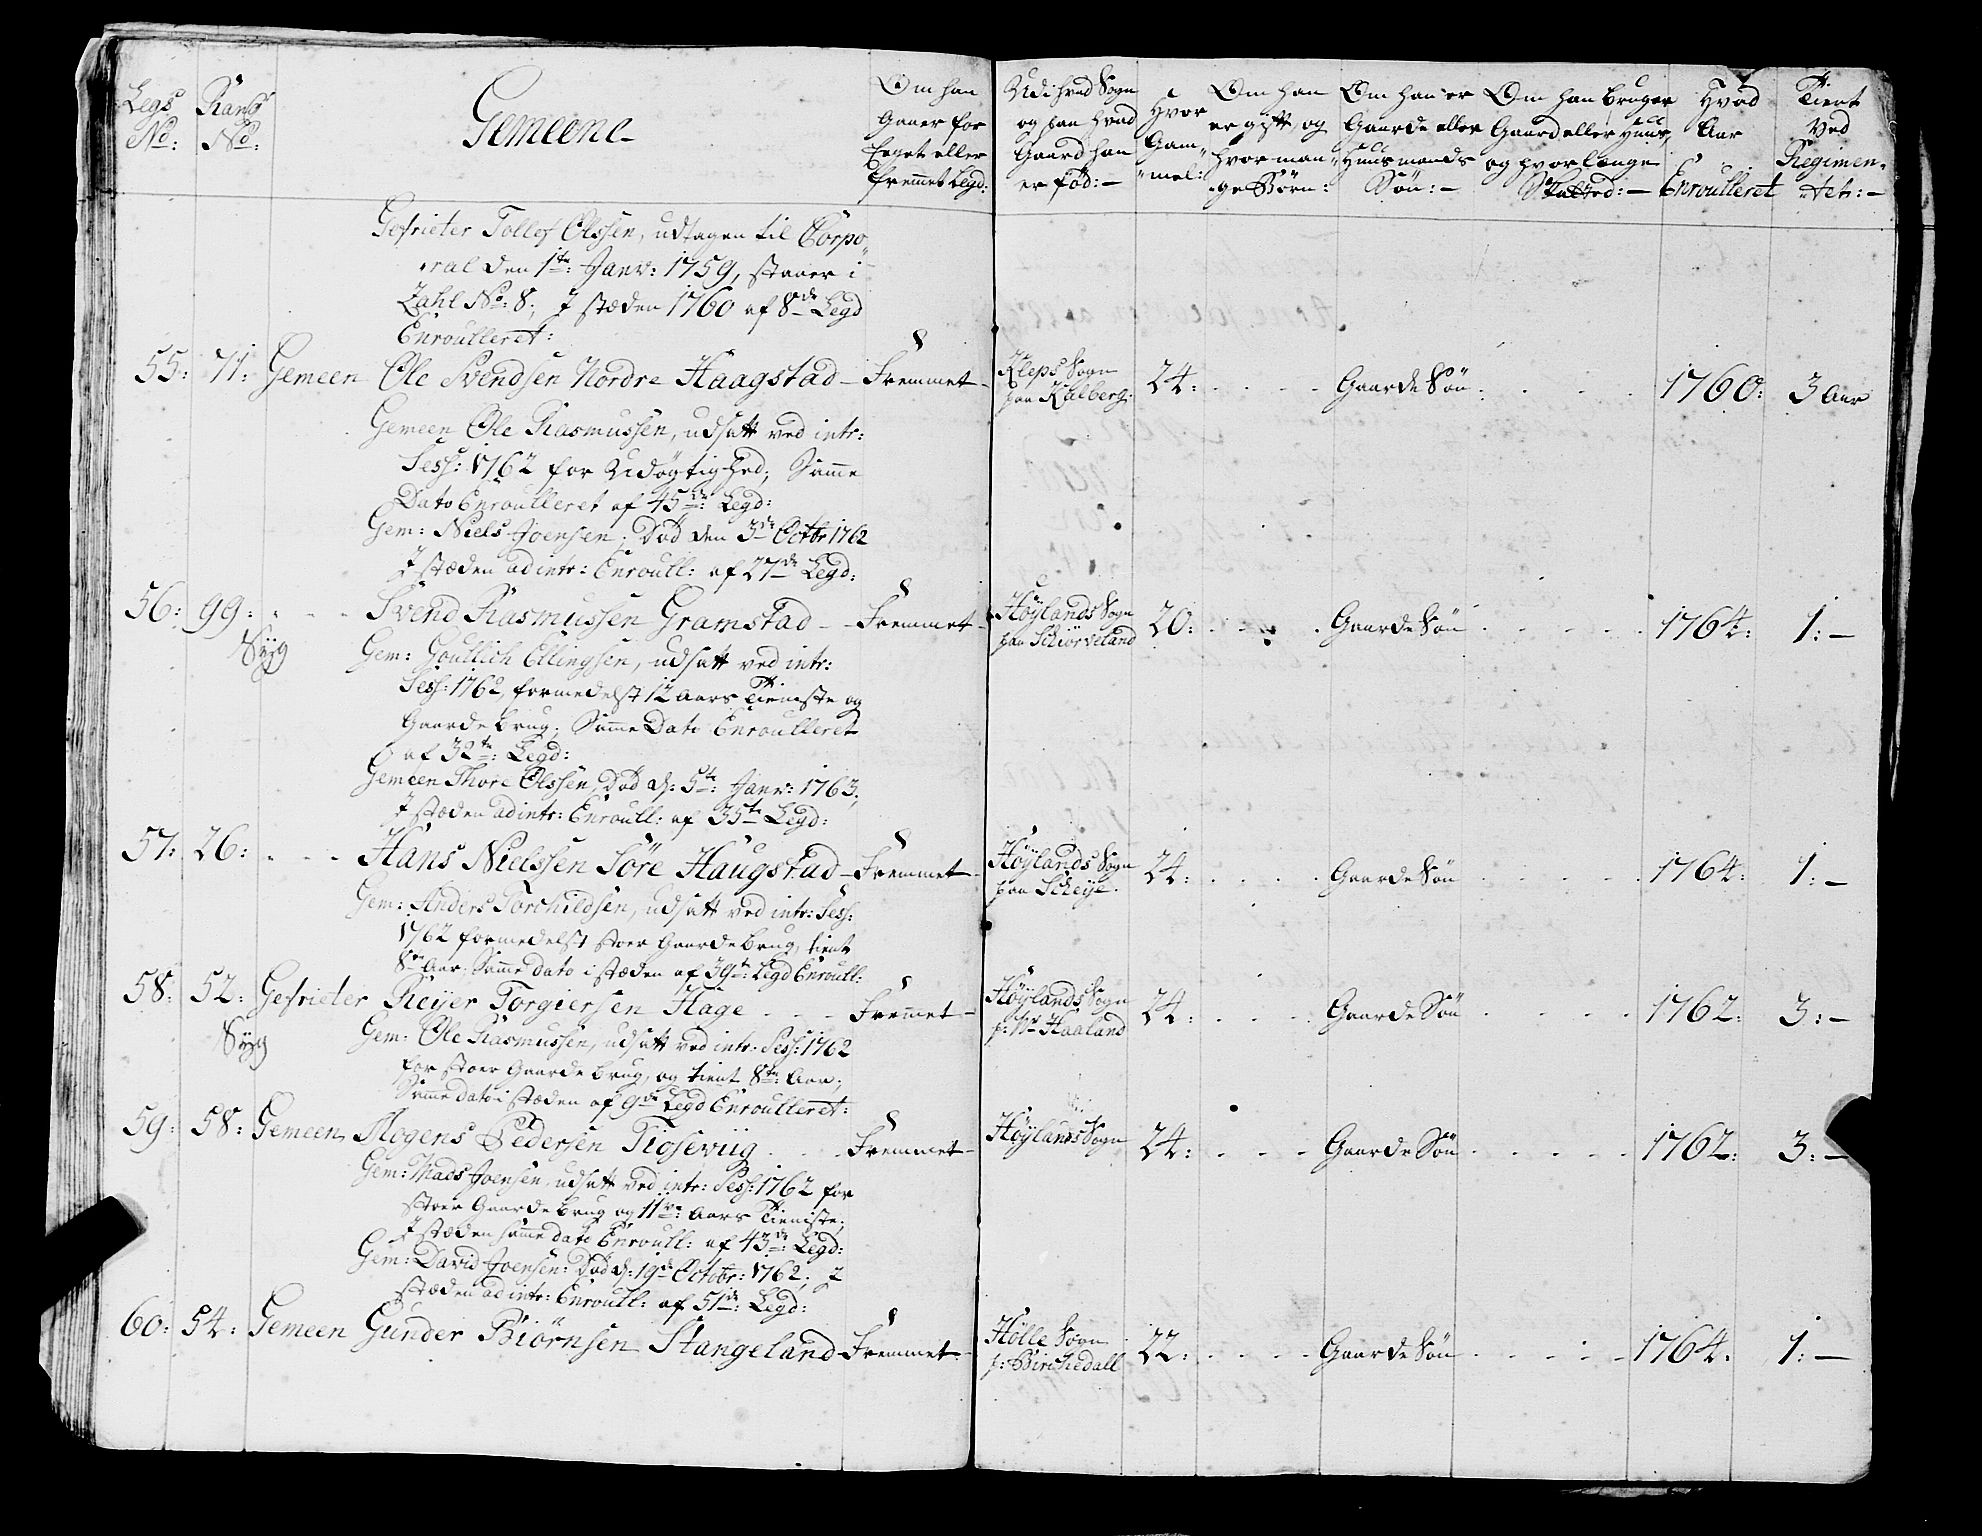 Legs No: Rangs No: Gemeene Om han Gaaer for Eeget eller fremmet Legd: Udi hvad Sogn og paa hvad Gaard han er fød:— Hvor Gam-mel: Om han er gift, og hvor man-ge Børn: Om han er Gaarde eller Huusmands Søn:— Om han bruger Gaard eller Huus, og hvor længe Hvad Aar Enroulleret Tient Ved Regimen-tet:—
Gefrieter Tollef Olssen, udtagen til Corpo-
ral den 1te: Janv: 1759, staaer i
Zahl No: 8; I stæden 1760 af 8de Legd
Enroulleret:
55: 71: Gemeen Ole Svendsen Nordre Haagstad — Fremmet — Kleps Sogn paa Kalberg: 24: Gaarde Søn 1760: 3 Aar
Gemeen Ole Rasmussen, udsatt ved intr:
Sess: 1762 for Udøgtighed; Samme
Dato Enroulleret af 45de: Legd:
Gem: Niels Joensen; Død den 3de Octbr 1762
I stæden ad intr: Enroull: af 27de Legd:
56: 99: Svend Rasmussen Gramstad — Fremmet — Høylands Sogn paa Schiørveland 20: Gaarde Søn 1764: 1:—
Syg
Gem: Goutlich Ellingsen, udsatt ved intr:
Sess: 1762, formedelst 12 Aars Tieniste og
Gaarde brug; Samme Dato Enroulleret
af 32te: Legd:
Gemeen Thore Olssen, Død d: 5te: Janv: 1763;
I stæden ad intr: Enroull: af 35te Legd:
57: 26: Hans Nielssen Søre Haugstad — Fremmet — Høylands Sogn paa Scheye. 24: Gaarde Søn 1764: 1:—
Gem: Anders Torchildsen, udsatt ved intr: Sess:
1762 formedelst stoer Gaarde brug, tient
8te Aar; Samme dato i stæden af 39te: Legd Enroull:
58: 52: Gefrieter Reijer Torgiersen Hage Fremmet — Høylands Sogn p: Nr Haaland 24: Gaarde Søn 1762: 3:—
Syg
Gem: Ole Rasmussen, udsatt ved intr: Sess: 1762
for stoer Gaarde brug, og tient 8te: Aar;
Samme dato i stæden af 9de Legd Enroulleret:
59: 58: Gemeen Mogens Pedersen Tiosevüg Fremmet — Høylands Sogn 24: Gaarde Søn 1762: 3:—
Gem: Mads Joensen, udsatt ved intr: Sess: 1762 for
stoer Gaarde brug og 11ve: Aars Tieniste;
I stæden samme dato Enroull: af 43de: Legd:
Gem: David Joensen: Død d: 19de Octobr: 1762; I
stæden ad intr: Enroull: af 51de: Legd:
60: 54: Gemeen Gunder Biørnsen Stangeland — Fremmet — Hølle Sogn 22: Gaarde Søn 1764. 1:—